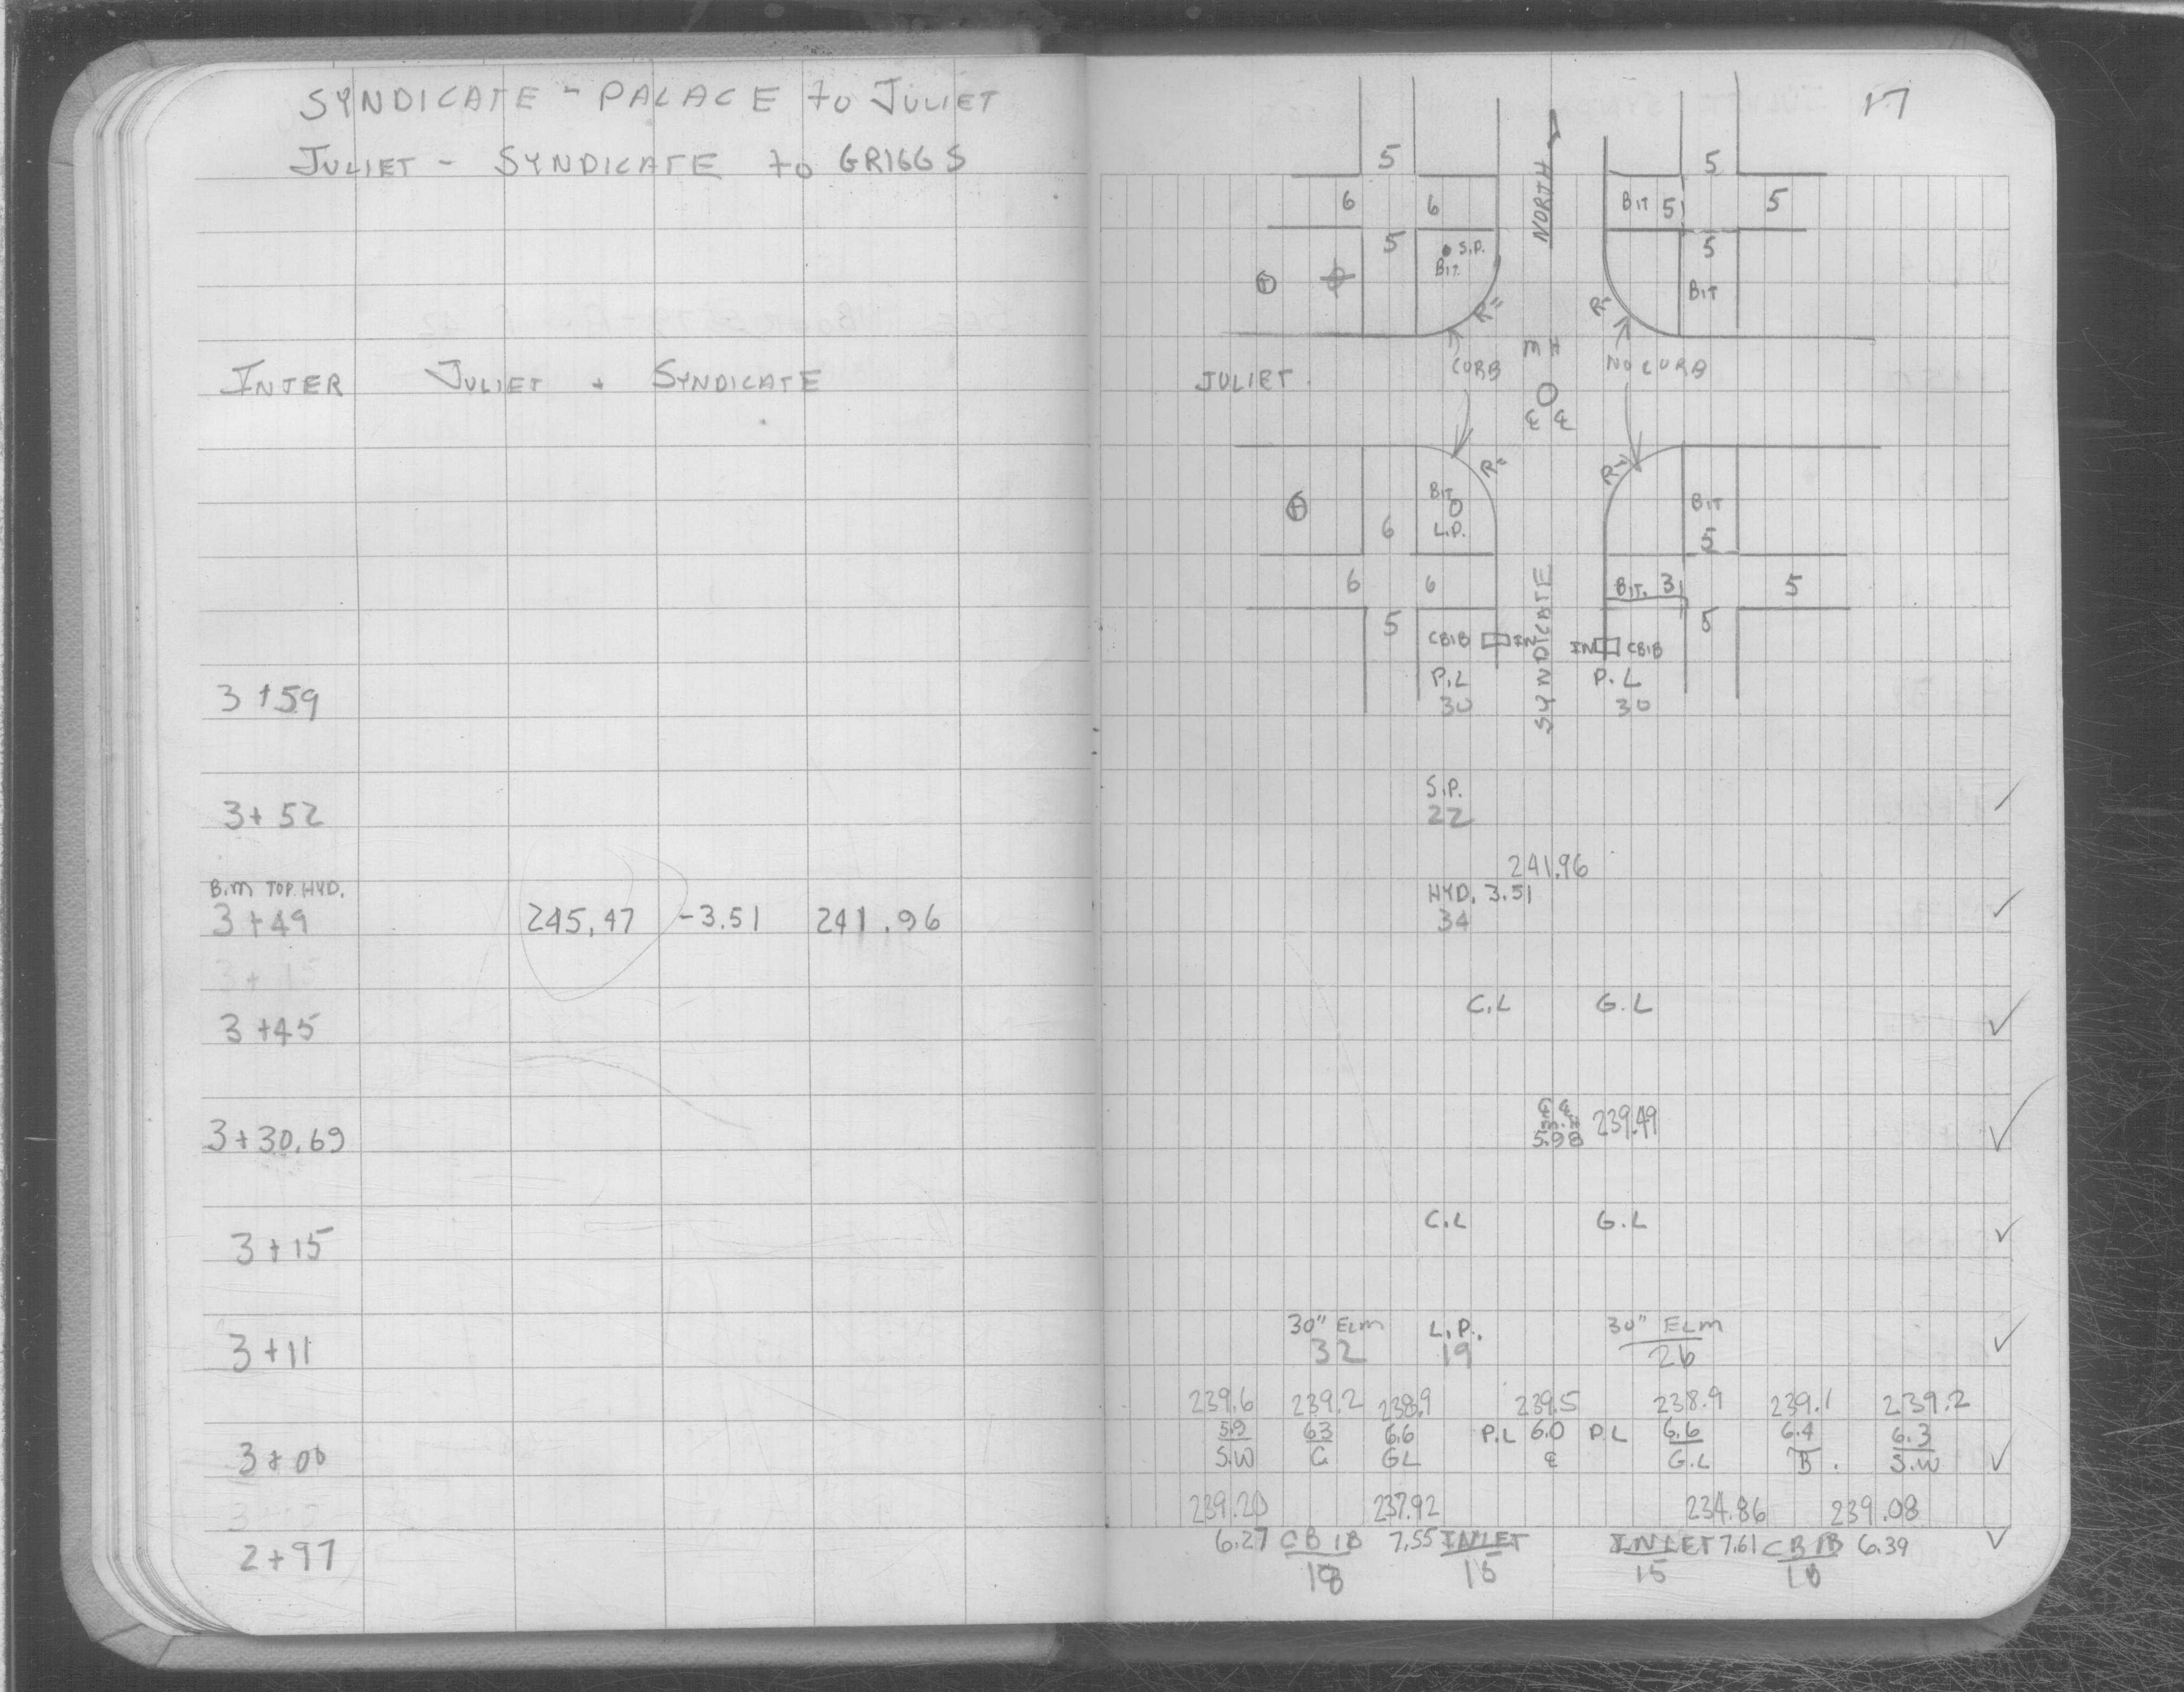 SYNDICATE - PALACE to JULIET
JULIET - SYNDICATE to GRIGGS
INTER JULIET + SYNDICATE
3+59
3+52
B.M TOP. HYD.
3+49 245.47 -3.51 241.96
3+45
3+30.69
3+15
3+11
3+00
2+97
17
5 5
6 6 NORTH BIT 5 5
5 S.P. 5
BIT. BIT
R- R-
CURB MH NO CURB
JULIET
℄ ℄
R- R-
BIT BIT
6 L.P. 5
6 6 BIT. 3 5
5 5
CBIB IN SYNDICATE IN CBIB
P.L P.L
30 30
S.P.
22
241.96
HYD. 3.51
34
C.L G.L
℄ ℄
M.H 239.49
5.98
C.L G.L
30" ELM L.P. 30" ELM
32 19 26
239.6 239.2 238.9 239.5 238.9 239.1 239.2
5.9 6.3 6.6 P.L 6.0 P.L 6.6 6.4 6.3
S.W G GL ℄ G.L B. S.W
239.20 237.92 234.86 239.08
6.27 CB IB 7.55 INLET INLET 7.61 CB IB 6.39
18 15 15 18